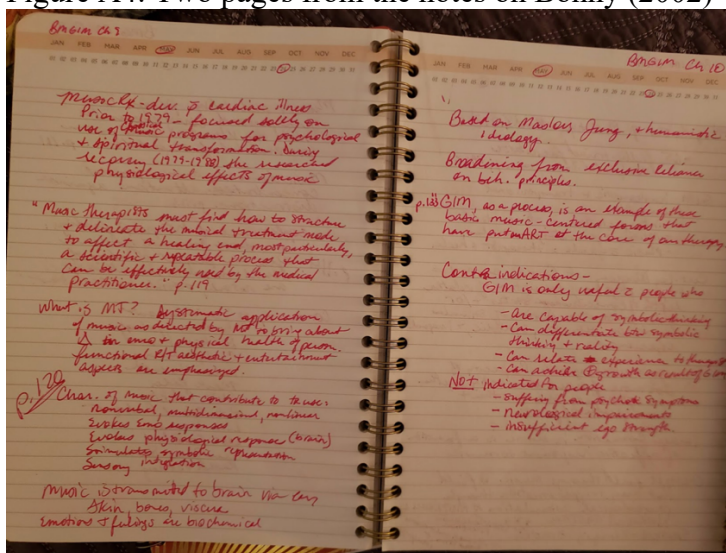 Figure A4. Two pages from the notes on Bonny (2002)
BMGIM Ch 9
JAN FEB MAR APR MAY JUN JUL AUG SEP OCT NOV DEC
Music Rx - dev. c̄ cardiac illness
Prior to 1979 - focused solely on
use of classical music programs for psychological
+ spiritual transformation. During
recovery (1979-1988) she researched
physiological effects of music
"Music therapists must find how to structure
+ delineate the musical treatment mode
to affect a healing end, most particularly,
a scientific + repeatable process that
can be effectively used by the medical
practitioner." p. 119
What is MT? Systematic application
of music as directed by MT to bring about
Δ in emo + physical health of person.
functional aesthetic + entertainment
aspects are emphasized.
p.120
Char. of music that contribute to tx use:
nonverbal, multidimensional, nonlinear
Evokes Emo responses
Evokes physiological response (brain)
Stimulates symbolic representation
Sensory integration
Music is transmitted to brain via ears
skin, bones, viscera
Emotions + feelings are biochemical
BMGIM Ch 10
JAN FEB MAR APR MAY JUN JUL AUG SEP OCT NOV DEC
Based on Maslow, Jung, + humanistic
ideology.
Broadining from exclusive reliance
on beh. principles.
"GIM, as a process, is an example of these
basic music-centered forms that
have put an ART at the core of our therapy
Contraindications -
GIM is only useful c̄ people who
- are capable of symbolic thinking
- Can differentiate btw symbolic
thinking + reality
- Can relate experience to therapist
- Can achieve growth as result of GIM
Not indicated for people
- suffering from psychotic symptoms
- neurological impairments
- insufficient ego strength.